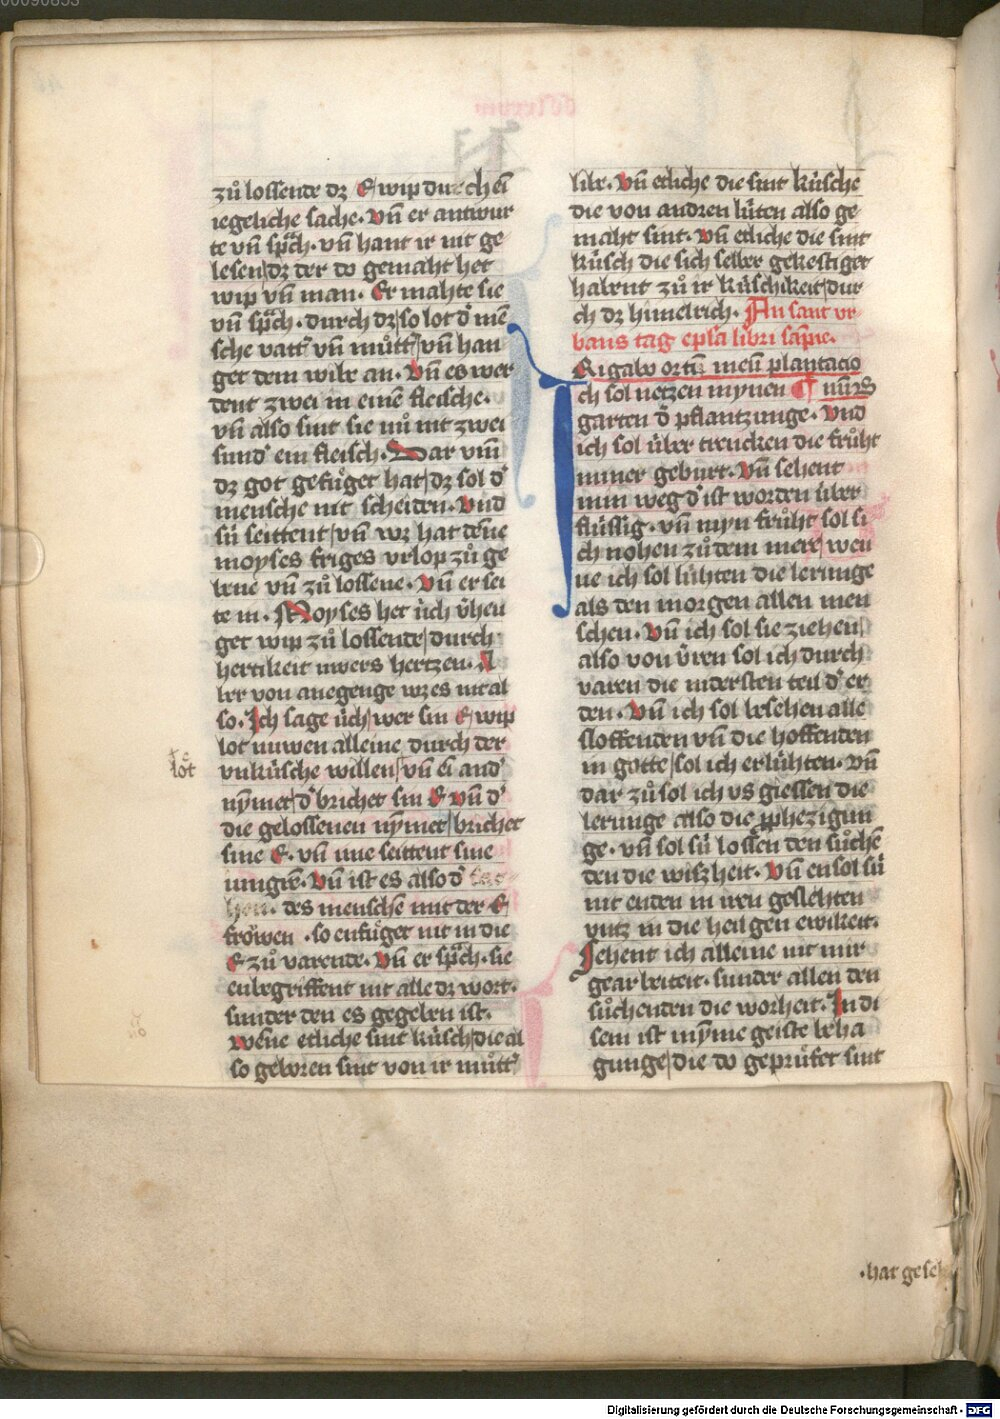 zuͦ lossende dz E wip durch ei
iegeliche sache. Vn̄ er antwur
te vn̄ sp̄ch. vn̄ hant ir nit ge
lesen dz der do gemaht het
wip vn̄ man. Er mahte sie
vn̄ sp̄ch. durch dz so lot d͛ mē
sche vatt͛ vn̄ muͦtt͛ vn̄ han
get dem wibe an. Vn̄ es wer
dent zwei in eime fleische.
vn̄ also sint sie nuͦ nit zwei
sund͛ ein fleisch. Dar vm̄
dz got gefuͤget hat dz sol d͛
mensche nit scheiden. Vnd
suͥ seittent vn̄ wz hat deñe
moyses friges vrlop zuͦ ge
bene vn̄ zuͦ lossene. Vn̄ er sei
te in. Moyses het uͥch v͛hen
get wip zuͦ lossende durch
hertikeit uwers hertzen. A
ber von anegenge wz es nit al
so. Ich sage uͥch wer sin E wip
lot nuwen alleine durch der
vnkuͥsche willen vn̄ ei and͛
nȳmet d͛ brichet sin E vn̄ d͛
die gelossenen nȳmet brichet
sine E. vn̄ ime seittent sine
iungr̄e. Vn̄ ist es also d͛
des menschē mit der E
froͤwen .so enfuͤget nit in die
E zuͦ varende. Vn̄ er sp̄ch. sie
enbegriffent nit alle dz wort.
sunder den es gegeben ist.
Weñe etliche sint kuͥsch die al
so geboren sint von ir muͦtt͛
lot
libe. Vn̄ etliche die sint kuͥsche
die von andren luͥten also ge
maht sint. Vn̄ etliche die sint
kuͥsch die sich selber gekestiget
habent zuͦ ir kuͥschikeit dur
ch dz himelrich. An sant vr
bans tag ep̄la libri sap̄ie.
Rigabo ortū meū plantacio
ch sol netzen mynen ¶ nū
garten d͛ pflantzunge. Vnd
ich sol uͥber trencken die fruͦht
miner geburt. Vn̄ sehent
min weg d͛ ist worden uͥber
fluͥssig. vn̄ myn fruͦht sol si
ch nohen zuͦ dem mere wen
ne ich sol luͥhten die lerunge
als den morgen allen men
schen. Vn̄ ich sol sie ziehen
also von v͛ren sol ich durch
varen die indersten teil d͛ er
den. Vn̄ ich sol besehen alle
sloffenden vn̄ die hoffenden
in gotte sol ich erluͥhten. Vn̄
dar zuͦ sol ich vs giessen die
lerunge also die p̱phezigun
ge. vn̄ sol suͥ lossen den suͦchē
den die wiszheit. Vn̄ en sol suͥ
nit enden in iren geslehten
vntz in die heilgen ewikeit.
Sehent ich alleine nit mir
gearbeiteit. sunder allen den
suͦchenden die worheit. In di
sem ist mȳme geiste beha
gunge die do gepruͤfet sint
.hat geseh
Digitalisierung gefördert durch die Deutsche Forschungsgemeinschaft - DFG